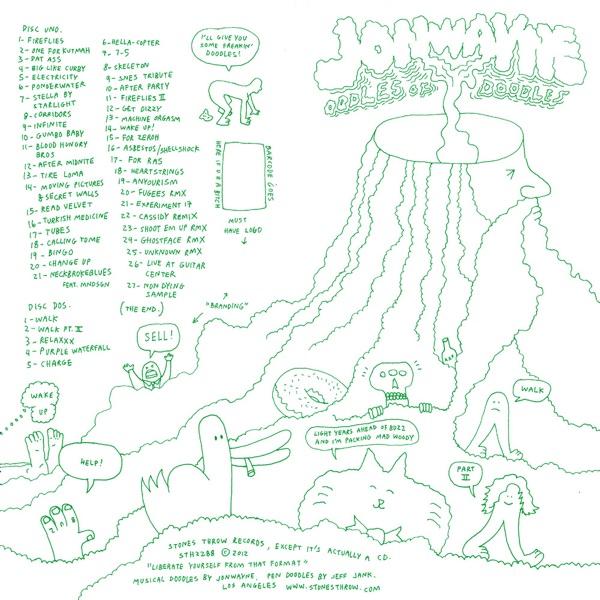 DISC UNO.
1- FIREFLIES
2- ONE FOR KUTMAH
3- DAT ASS
4- BIG LIKE CURBY
5- ELECTRICITY
6- PONDERWATER
7- STELLA BY
STARLIGHT
8- CORRIDORS
9- INFINITE
10- GUMBO BABY
11- BLOOD HUNGRY
BROS
12- AFTER MIDNITE
13- TIRE LOMA
14- MOVING PICTURES
& SECRET WALLS
15- READ VELVET
16- TURKISH MEDICINE
17- TUBES
18- CALLING TOME
19- BINGO
20- CHANGE UP
21- NECKBROKEBLUES
FEAT. MNDSGN
DISC DOS.
1- WALK
2- WALK PT. II
3- RELAXXX
4- PURPLE WATERFALL
5- CHARGE
6- HELLA-COPTER
7- 7-5
8- SKELETON
9- SNES TRIBUTE
10- AFTER PARTY
11- FIREFLIES II
12- GET DIZZY
13- MACHINE ORGASM
14- WAKE UP!
15- FOR ZEROH
16- ASBESTOS/SHELLSHOCK
17- FOR RAS
18- HEARTSTRINGS
19- ANYOURISM
20- FUGEES RMX
21- EXPERIMENT 17
22- CASSIDY REMIX
23- SHOOT EM UP RMX
24- GHOSTFACE RMX
25- UNKNOWN RMX
26- LIVE AT GUITAR
CENTER
27- NON DYING
SAMPLE
(THE END.)
I'LL GIVE YOU
SOME FREAKIN'
DOODLES!
BARCODE GOES
HERE IF U R A BITCH
MUST
HAVE LOGO
"BRANDING"
JONWAYNE
OODLES OF DOODLES
SELL!
WAKE
UP
HELP!
LIGHT YEARS AHEAD OF BUZZ
AND I'M PACKING MAD WOODY
WALK
PART
II
STONES THROW RECORDS, EXCEPT IT'S ACTUALLY A CD.
STH2288 © 2012
"LIBERATE YOURSELF FROM THAT FORMAT"
MUSICAL DOODLES BY JONWAYNE, PEN DOODLES BY JEFF JANK.
LOS ANGELES WWW.STONESTHROW.COM